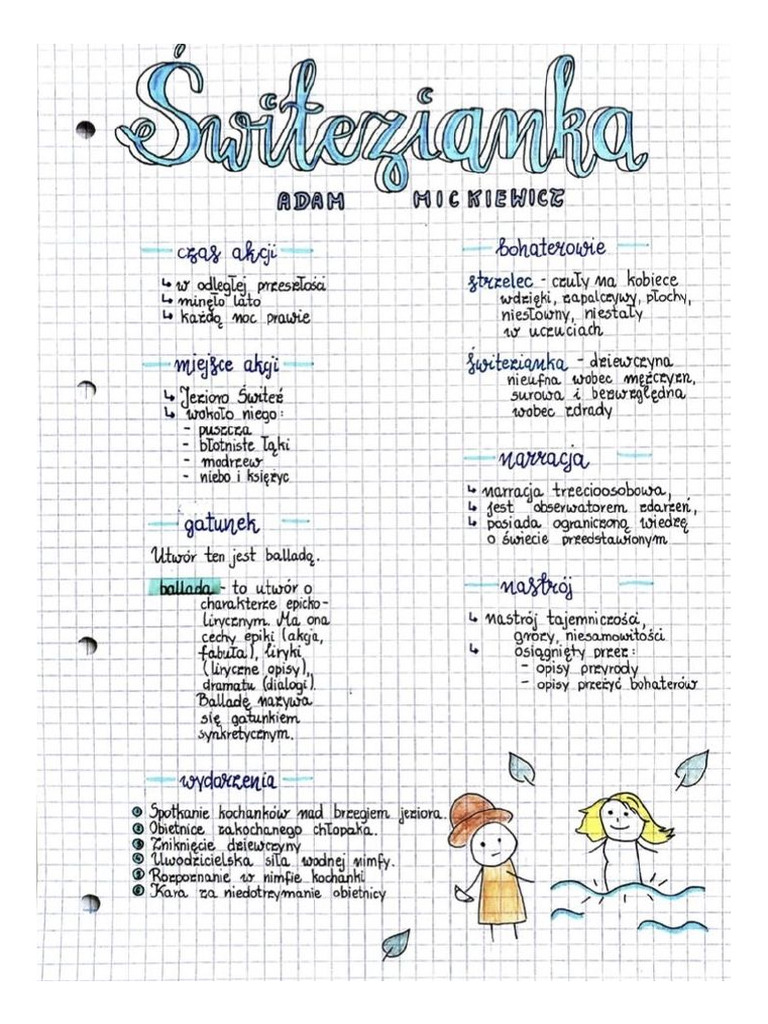 Świtezianka
ADAM MICKIEWICZ
czas akcji
↳ w odległej przeszłości
↳ minęło lato
↳ każdą noc prawie
miejsce akcji
↳ Jezioro Świteź
↳ wokoło niego:
- puszcza
- błotniste łąki
- modrzew
- niebo i księżyc
gatunek
Utwór ten jest balladą.
ballada - to utwór o
charakterze epicko-
lirycznym. Ma ona
cechy epiki (akcja,
fabuła), liryki
(liryczne opisy),
dramatu (dialogi).
Balladę nazywa
się gatunkiem
synkretycznym.
wydarzenia
1 Spotkanie kochanków nad brzegiem jeziora.
2 Obietnice zakochanego chłopaka.
3 Zniknięcie dziewczyny
4 Uwodzicielska siła wodnej nimfy.
5 Rozpoznanie w nimfie kochanki
6 Kara za niedotrzymanie obietnicy
bohaterowie
strzelec - czuły na kobiece
wdzięki, zapalczywy, płochy,
niesłowny, niestały
w uczuciach
świtezianka - dziewczyna
nieufna wobec mężczyzn,
surowa i bezwzględna
wobec zdrady
narracja
↳ narracja trzecioosobowa,
↳ jest obserwatorem zdarzeń,
↳ posiada ograniczoną wiedzę
o świecie przedstawionym
nastrój
↳ nastrój tajemniczości,
grozy, niesamowitości
↳ osiągnięty przez:
- opisy przyrody
- opisy przeżyć bohaterów